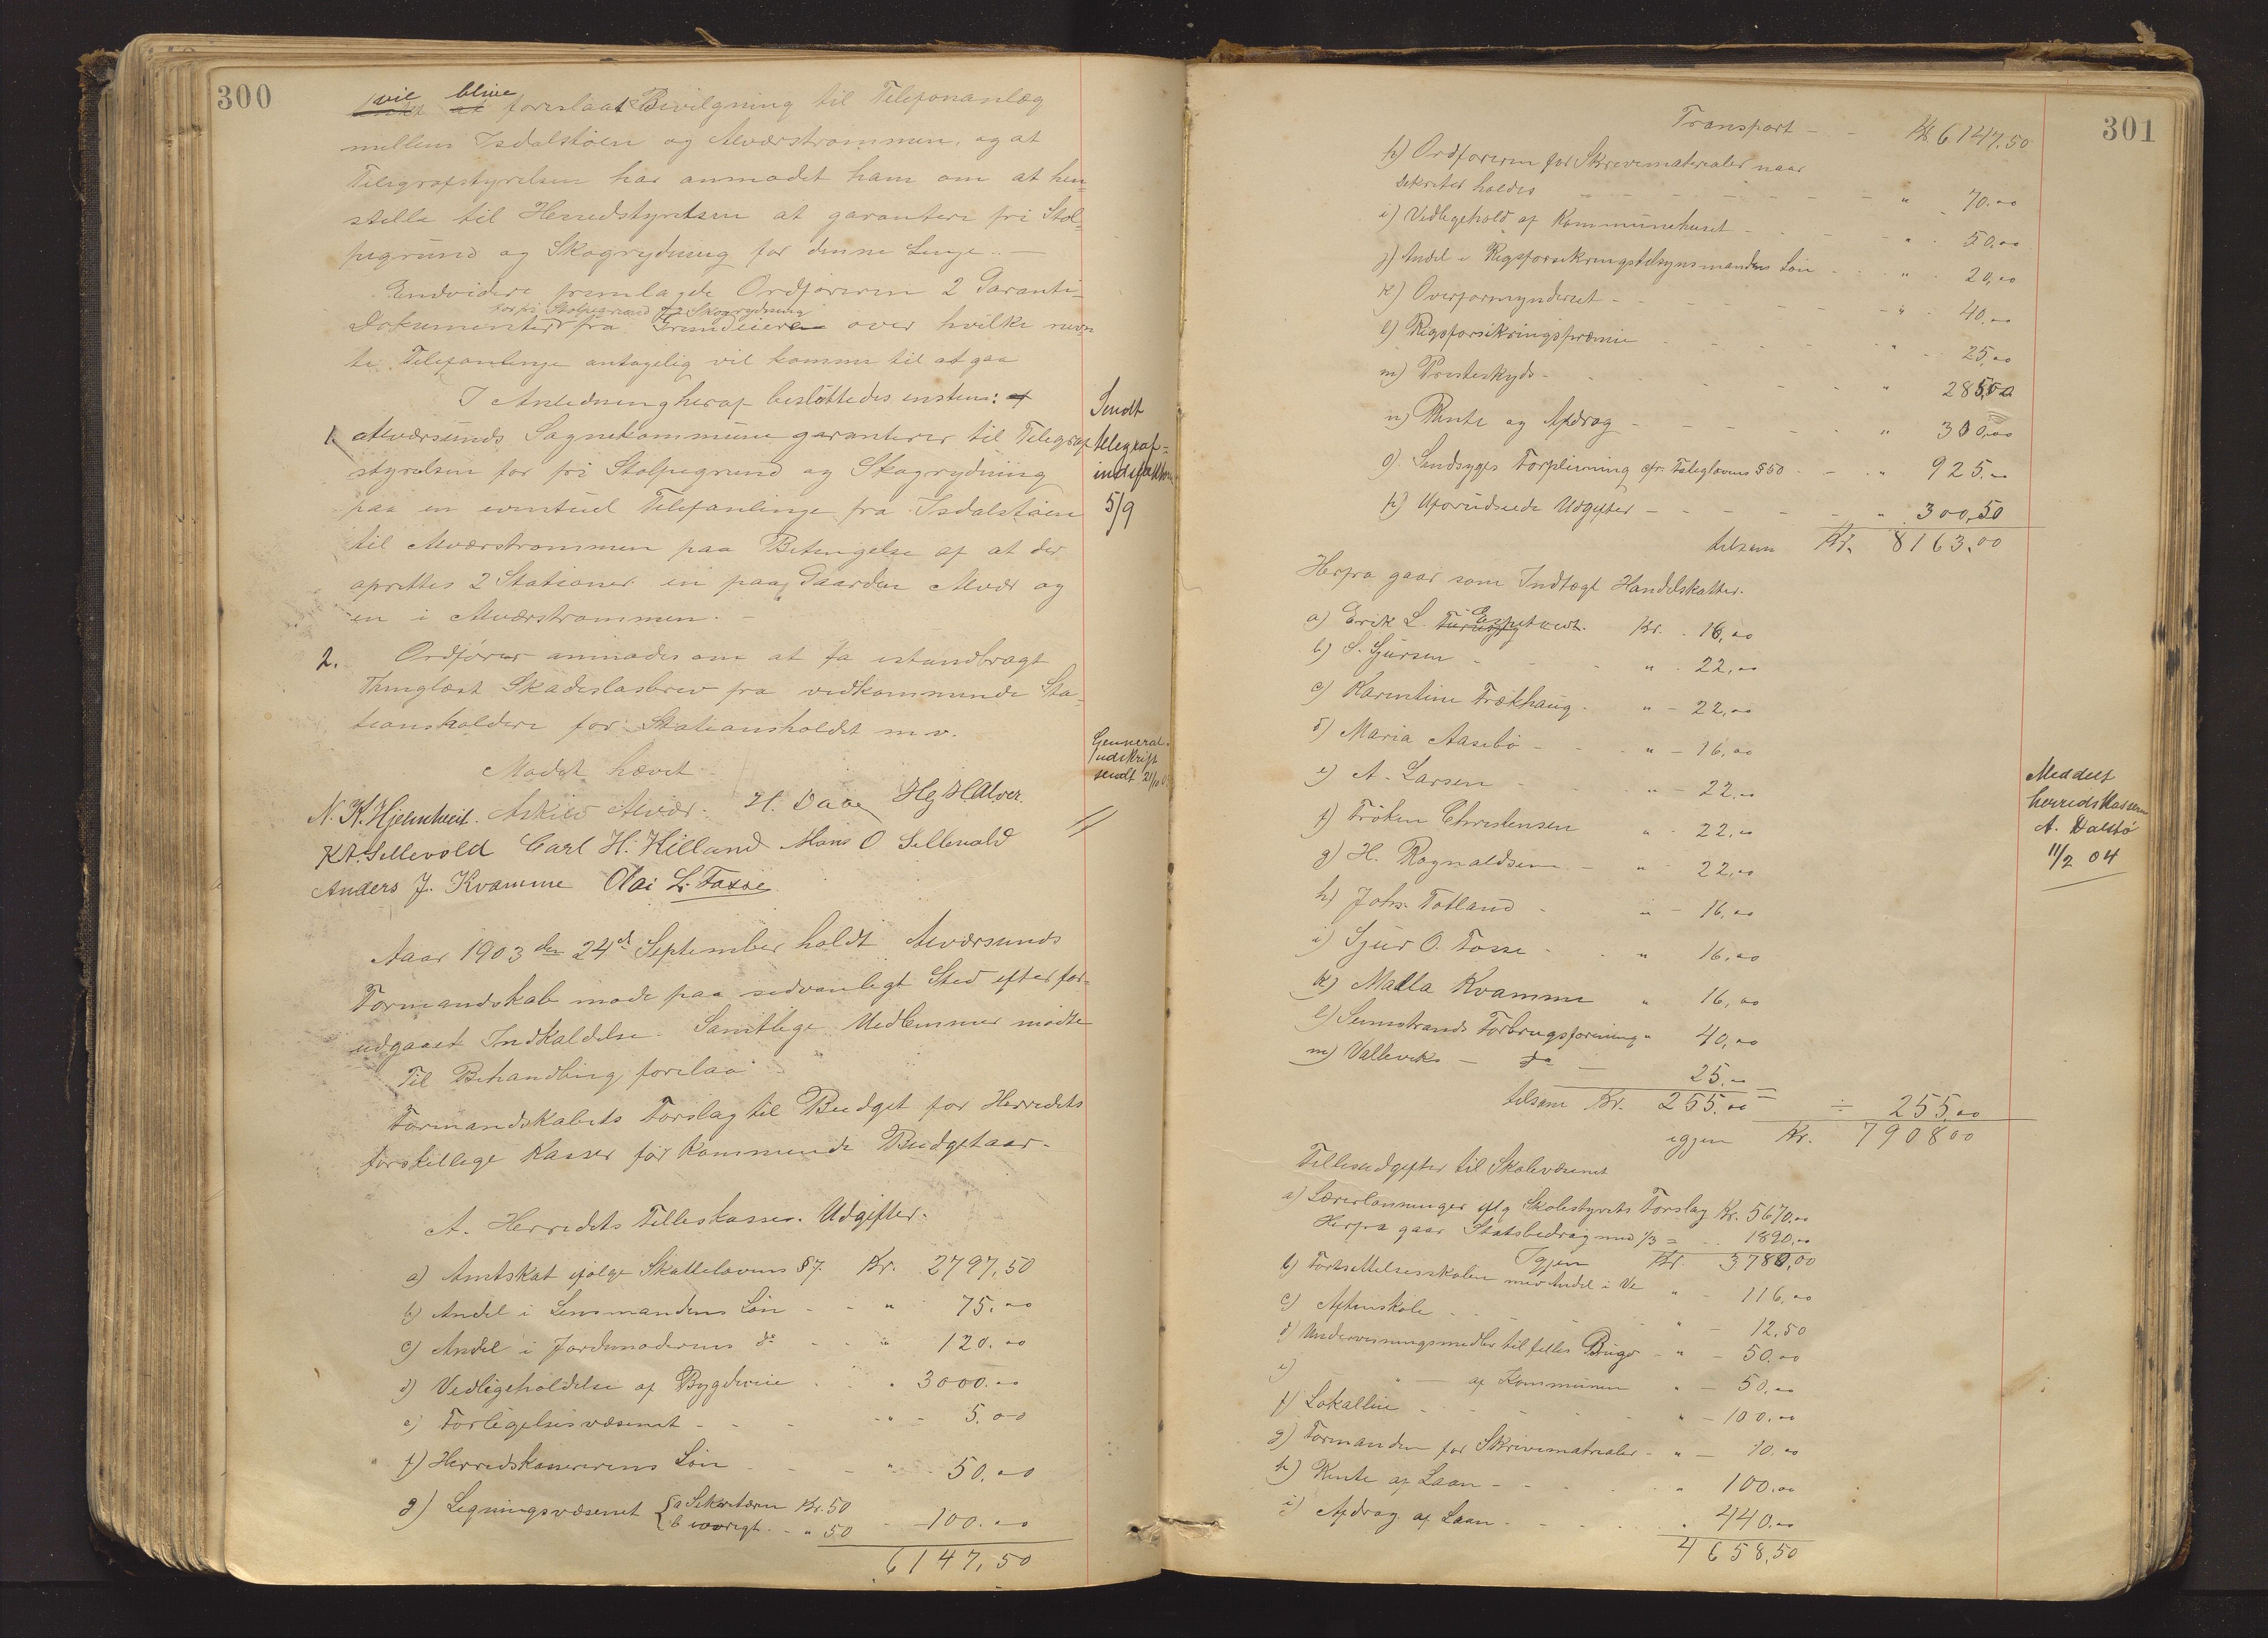 300
vil blive foreslaat Bevilgning til Telefonanlæg
mellem Isdalstøen og Alværstrømmen, og at
Telegrafstyrelsen har anmodet ham om at hen-
stille til Herredstyrelsen at garantere fri Stol-
pegrund og Skogrydning for denne Linje. -
Endvidere fremlagde Ordføreren 2 Garanti-
for fri Stolpegrund og Skogrydning
Dokumenter fra Grundeiere over hvilke nævn
te Telefonlinje antagelig vil komme til at gaa
I Anledning heraf besluttedes enstem:
1. Alværsunds Sognekommune garanterer til Telegraf
styrelsen for fri Stolpegrund og Skogrydning
paa en eventuel Telefonlinje fra Isdalstøen
til Alværstrømmen paa Betingelse af at der
oprettes 2 Stationer en paa Gaarden Alvær og
en i Alværstrømmen. -
2. Ordfører anmodes om at fa istandbragt
Thinglæst Skadesløsbrev fra vedkommende Sta-
tionsholdere for Stationsholdet m v.
Mødet hævet
Sendt
telegraf-
inspektøren
5/9
Genneral-
udskrift
sendt 21/10
N. K. Hjelmtveit. Askild Alvær. H. Daae Hg H Alver
K A. Sellevold Carl H. Hilland Mons O Sellevold
Anders J. Kvamme Olai L. Fosse
Aaar 1903 den 24de September holdt Alværsunds
Formandskab møde paa sedvanlegt Sted efter for-
udgaaet Indkaldelse. Samtlige Medlemmer mødte
Til Behandling forelaa
Formandskabets Forslag til Budget for Herredets
forskellige Kasser for kommende Budgetaar.
A. Herredets Felleskasse. Udgifter.
a) Amtskat ifølge Skattelovens § 7. Kr. 2797,50
b) Andel i Lensmandens Løn - - " 75.00
c) Andel i Jordmoderens do - - " 120.00
d) Vedligeholdelse af Bygdeveie - - " 3000.00
e) Forligelsesvæsenet - - - " - 5.00
f) Herredskassererens Løn - - - " - 50.00
g) Ligningsvæsenet { a Sekretæren Kr. 50
b iøvrigt. - " 50 - 100.00
6147,50
301
Transport - - Kr. 6147,50
h) Ordføreren for Skrivematerialer naar
Sekretær holdes - - - - " - 70.00
i) Vedligehold af Kommunehuset - - - " - 50,00
j) Andel i Rigsforsikringstilsynsmandens Løn - - " - 20,00
k) Overformynderiet - - - - " - 40,00
l) Rigsforsikringspræmie - - - " - 25,00
m) Presteskyds - - - - " 285,00
n) Rente og Afdrag - - - - " 300,00
o) Sindsyges Forpleining cfr. Fatiglovens § 50 - - " 925.00
p) Uforudseede Udgifter - - - - " 300,50
tilsam Kr. 8163,00
Herfra gaar som Indtægt Handelskatter.
a) Erik L. Espetvedt. Kr. . 16,00
b) S. Sjursen - - - " . 22.00
c) Karentine Trækhaug - " - 22,00
d) Maria Aasebø - - - " - 16,00
e) A. Larsen - - " - 22.00
f) Frøken Christensen " - 22.00
g) H. Ragnaldsen - " - 22,00
h) Johs. Totland - " - 16,00
i) Sjur O. Fosse - - " 16,00
k) Malla Kvamme " 16,00
l) Seimstrands Forbrugsforening " 40,00
m) Valleviks - do - 25.00
tilsam Kr. 255.00 = ÷ 255,00
igjen Kr. 7908 00
Meddelt
herredskasserer
A. Dalstø
11/2 04
Fellesudgifter til Skolevæsenet
a) Lærerlønninger iflg Skolestyrets Forslag Kr. 5670.00
Herfra gaar Statsbidrag med 1/3 = .. 1890,00
Igjen Kr. 3780,00
b) Fortsettelsesskolen med Andel i Ve " - 116,00
c) Aftenskole - - - " - 12,50
d) Undervisningsmidler til felles Brug - " - 50.00
e) " - af Kommunen " - 50,00
f) Lokalleie - - - - " - 100.00
g) Formanden for Skrivematrialer - " - 10.00
h) Rente af Laan - - - - " 100.00
i) Afdrag af Laan - - - - " 440.00
4658,50